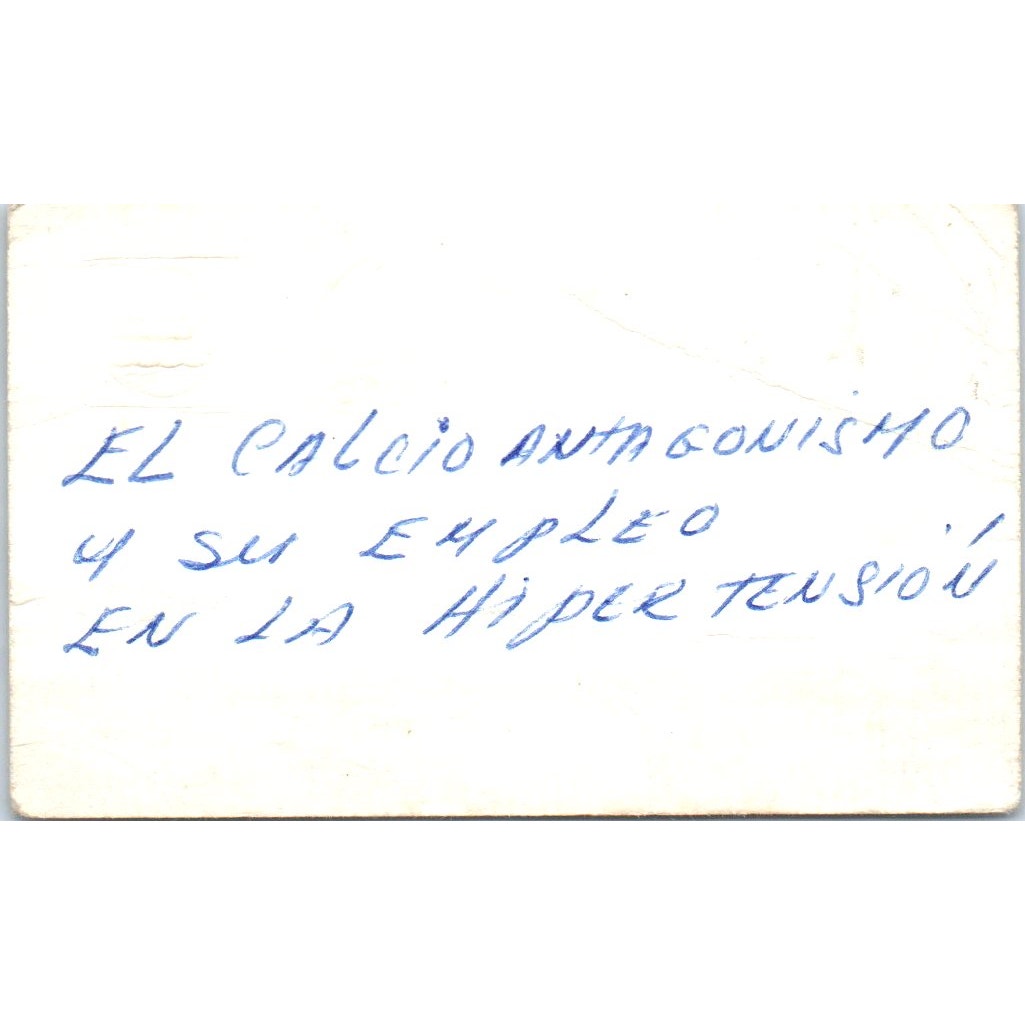 EL CALCIO ANTAGONISMO
Y SU EMPLEO
EN LA HIPERTENSIÓN